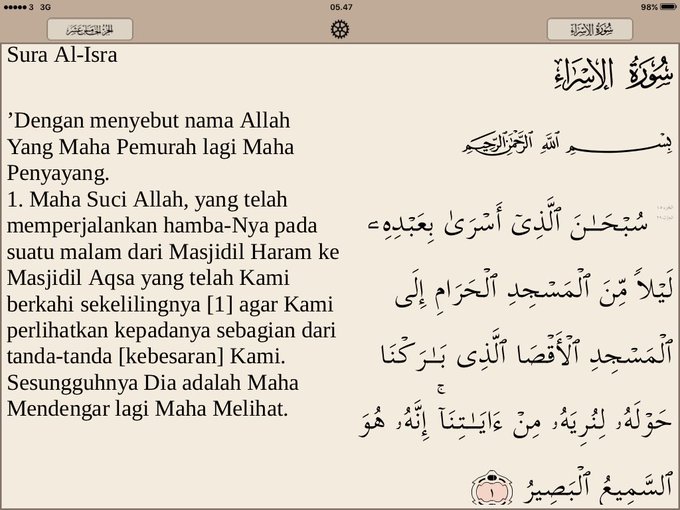 3 3G 05.47 98%
سُورَةُ الإِسْرَاءِ
Sura Al-Isra
’Dengan menyebut nama Allah
Yang Maha Pemurah lagi Maha
Penyayang.
1. Maha Suci Allah, yang telah
memperjalankan hamba-Nya pada
suatu malam dari Masjidil Haram ke
Masjidil Aqsa yang telah Kami
berkahi sekelilingnya [1] agar Kami
perlihatkan kepadanya sebagian dari
tanda-tanda [kebesaran] Kami.
Sesungguhnya Dia adalah Maha
Mendengar lagi Maha Melihat.
سُورَةُ الإِسْرَاءِ
بِسْمِ اللَّهِ الرَّحْمَٰنِ الرَّحِيمِ
سُبْحَـٰنَ ٱلَّذِىٓ أَسْرَىٰ بِعَبْدِهِۦ
لَيْلًا مِّنَ ٱلْمَسْجِدِ ٱلْحَرَامِ إِلَى
ٱلْمَسْجِدِ ٱلْأَقْصَا ٱلَّذِى بَـٰرَكْنَا
حَوْلَهُۥ لِنُرِيَهُۥ مِنْ ءَايَـٰتِنَآ ۚ إِنَّهُۥ هُوَ
ٱلسَّمِيعُ ٱلْبَصِيرُ ١